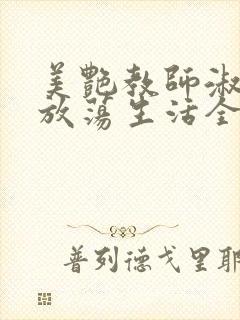 美艷教師淑
放蕩生活全
普列德戈里耶